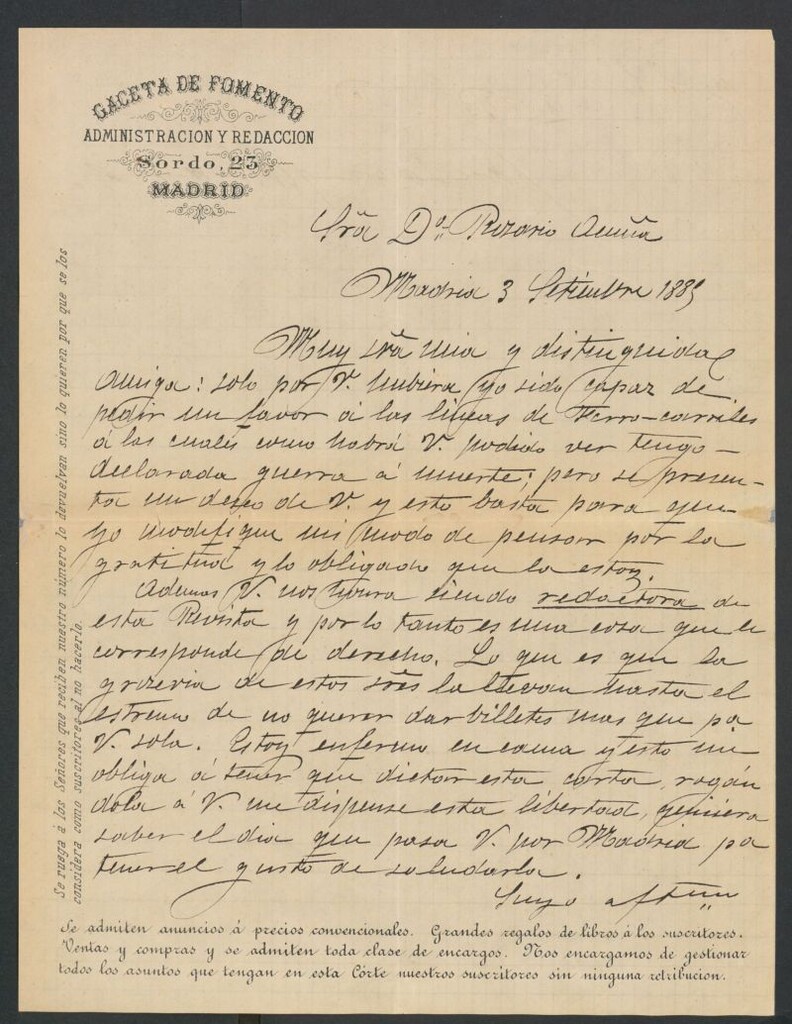 GACETA DE FOMENTO
ADMINISTRACION Y REDACCION
Sordo, 23
MADRID
Srã Dª Rosario Acuña
Madrid 3 Setiembre 1885
Muy srã mia y distinguida
amiga: solo por V. hubiera yo sido capaz de
pedir un favor á las lineas de Ferro-carriles
á las cuales como habrá V. podido ver tengo
declarada guerra á muerte; pero se presen-
ta un deseo de V. y esto basta para que
yo modifique mi modo de pensar por la
gratitud y lo obligado que la estoy.
Ademas V. nos honra siendo redactora de
esta Revista y por lo tanto es una cosa que le
corresponde de derecho. Lo que es que la
groseria de estos srẽs la llevan hasta el
estremo de no querer dar billetes mas que pa
V. sola. Estoy enfermo en cama y esto me
obliga á tener que dictar esta carta, rogán
dola á V. me dispense esta libertad, quisiera
saber el dia que pasa V. por Madrid pa
tener el gusto de saludarla.
Suyo aftmo
Se ruega á los Señores que reciben nuestro número lo devuelvan sino lo quieren por que se los
considera como suscritores al no hacerlo.
Se admiten anuncios á precios convencionales. Grandes regalos de libros á los suscritores.
Ventas y compras y se admiten toda clase de encargos. Nos encargamos de gestionar
todos los asuntos que tengan en esta Córte nuestros suscritores sin ninguna retribucion.